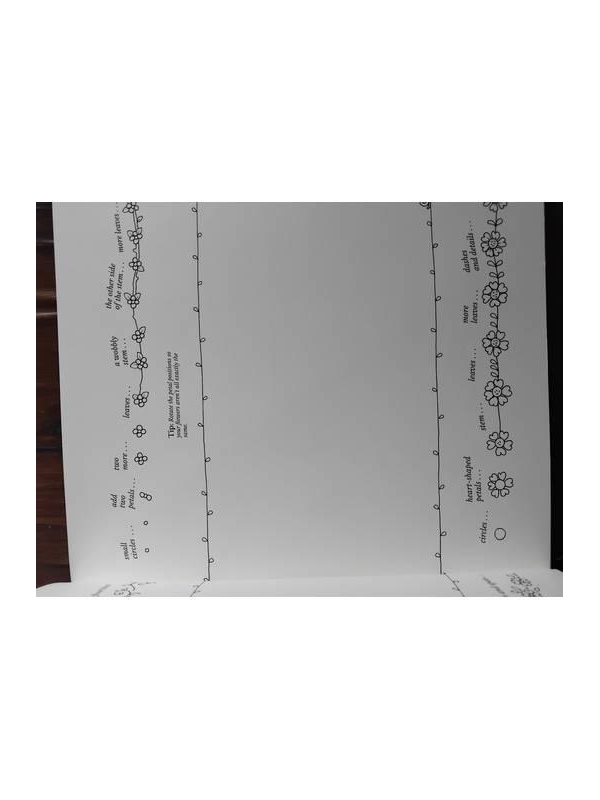 small
circles . . .
add
two
petals . . .
two
more . . .
leaves . . .
a wobbly
stem . . .
the other side
of the stem . . .
more leaves . . .
Tip: Rotate the petal positions so
your flowers aren't all exactly the
same.
circles . . .
heart-shaped
petals . . .
stem . . .
leaves . . .
more
leaves . . .
dashes
and details . . .